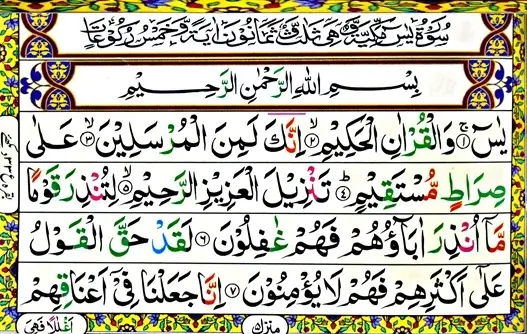 سُوْرَةُ يٰسٓ مَكِّيَّةٌ وَّهِيَ ثَلٰثٌ وَّثَمَانُوْنَ اٰيَةً وَّخَمْسُ رُكُوْعَاتٍ
بِسْمِ اللهِ الرَّحْمٰنِ الرَّحِيْمِ
يٰسٓ ۚ﴿۱﴾ وَالْقُرْاٰنِ الْحَكِيْمِ ۙ﴿۲﴾ اِنَّكَ لَمِنَ الْمُرْسَلِيْنَ ۙ﴿۳﴾ عَلٰى
صِرَاطٍ مُّسْتَقِيْمٍ ؕ﴿۴﴾ تَنْزِيْلَ الْعَزِيْزِ الرَّحِيْمِ ۙ﴿۵﴾ لِتُنْذِرَ قَوْمًا
مَّاۤ اُنْذِرَ اٰبَآؤُهُمْ فَهُمْ غٰفِلُوْنَ ﴿۶﴾ لَقَدْ حَقَّ الْقَوْلُ
عَلٰۤى اَكْثَرِهِمْ فَهُمْ لَا يُؤْمِنُوْنَ ﴿۷﴾ اِنَّا جَعَلْنَا فِيْۤ اَعْنَاقِهِمْ
منزل
اَغْلٰلًا فَهِيَ